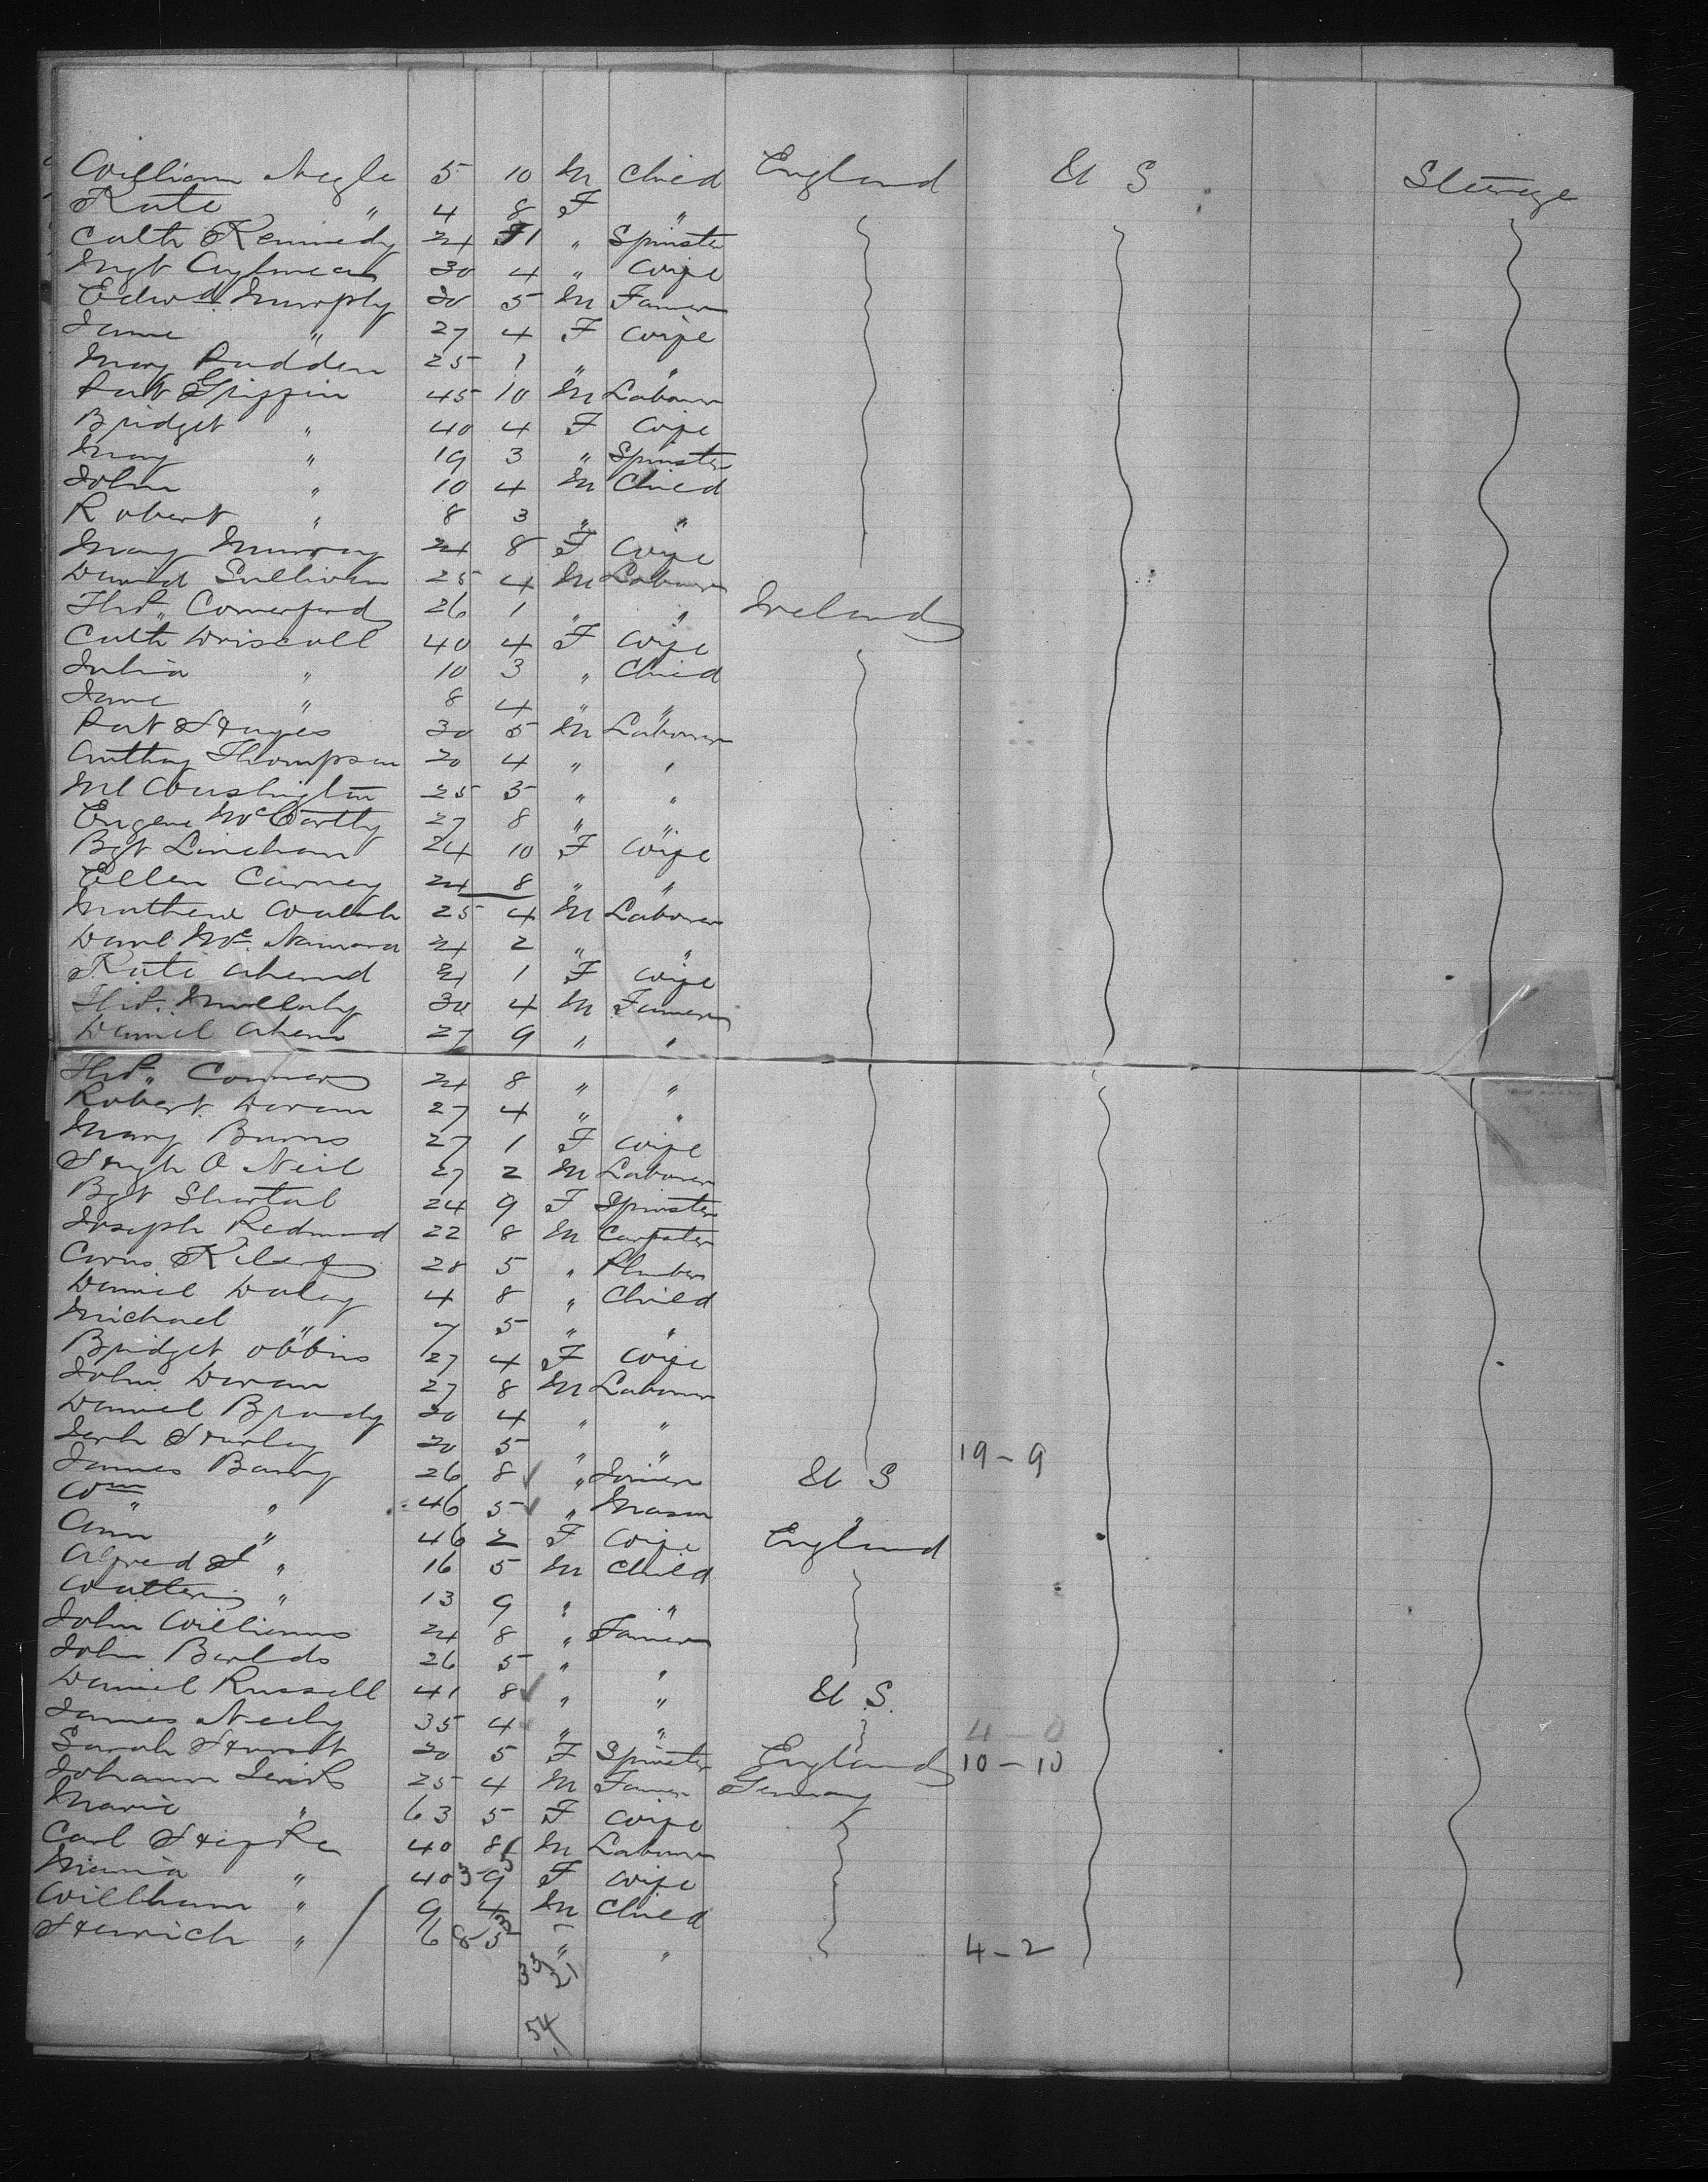 William Nagle 5 10 M Child England U S Steerage
Kate " 4 8 F "
Cath Kennedy 24 11 " Spinster
Mgt 30 4 " Wife
Edwd Murphy 30 5 M Farmer
Jane " 27 4 F Wife
Mary Padden 25 1 " "
Pat Griffin 45 10 M Labourer
Bridget " 40 4 F Wife
Mary " 19 3 " Spinster
John " 10 4 M Child
Robert " 8 3 " "
Mary Murray 24 8 F Wife
David Sullivan 25 4 M Labourer
Thos. Comerford 26 1 " " Ireland
Cath Driscoll 40 4 F Wife
Julia " 10 3 " Child
Jane " 8 4 " "
Pat Hayes 30 5 M Labourer
Anthony Thompson 20 4 " "
Ml Washington 25 5 " "
Eugene McCarthy 27 8 " "
Bgt Lineham 24 10 F Wife
Ellen Carney 24 8 " "
Mathew Walsh 25 4 M Labourer
Danl Mc. Namara 21 2 " "
Kate Ahernd 21 1 F Wife
Thos. Mullaly 30 4 M Farmer
Daniel Ahern 27 9 " "
Thos. Connors 24 8 " "
Robert Doran 27 4 " "
Mary Burns 27 1 F Wife
Hugh O Neil 27 2 M Labourer
Bgt Shortal 24 9 F Spinster
Joseph Redmond 22 8 M Carpenter
28 5 " Plumber
Daniel Daley 4 8 " Child
Michael " 7 5 " "
Bridget 27 4 F Wife
John Doran 27 8 M Labourer
Daniel Brady 20 4 " "
Jerh Hurley 20 5 " " 19-9
James Barry 26 8 " Joiner U S
Wm " 46 5 " Mason "
Ann " 46 2 F Wife England
Alfred H " 16 5 M Child
Walter " 13 9 " "
John Williams 24 8 " Farmer
John 26 5 " "
Daniel Russell 41 8 " " U S.
James Neely 35 4 " " 4-0
Sarah Hurst 20 5 F Spinster England 10-10
Johann 25 4 M Farmer Germany
Marie " 63 5 F Wife
Carl 40 8 M Labourer
Maria " 40 9 F Wife
Willham " 9 4 M Child
Henrich " 6 5 " " 4-2
33 21
54